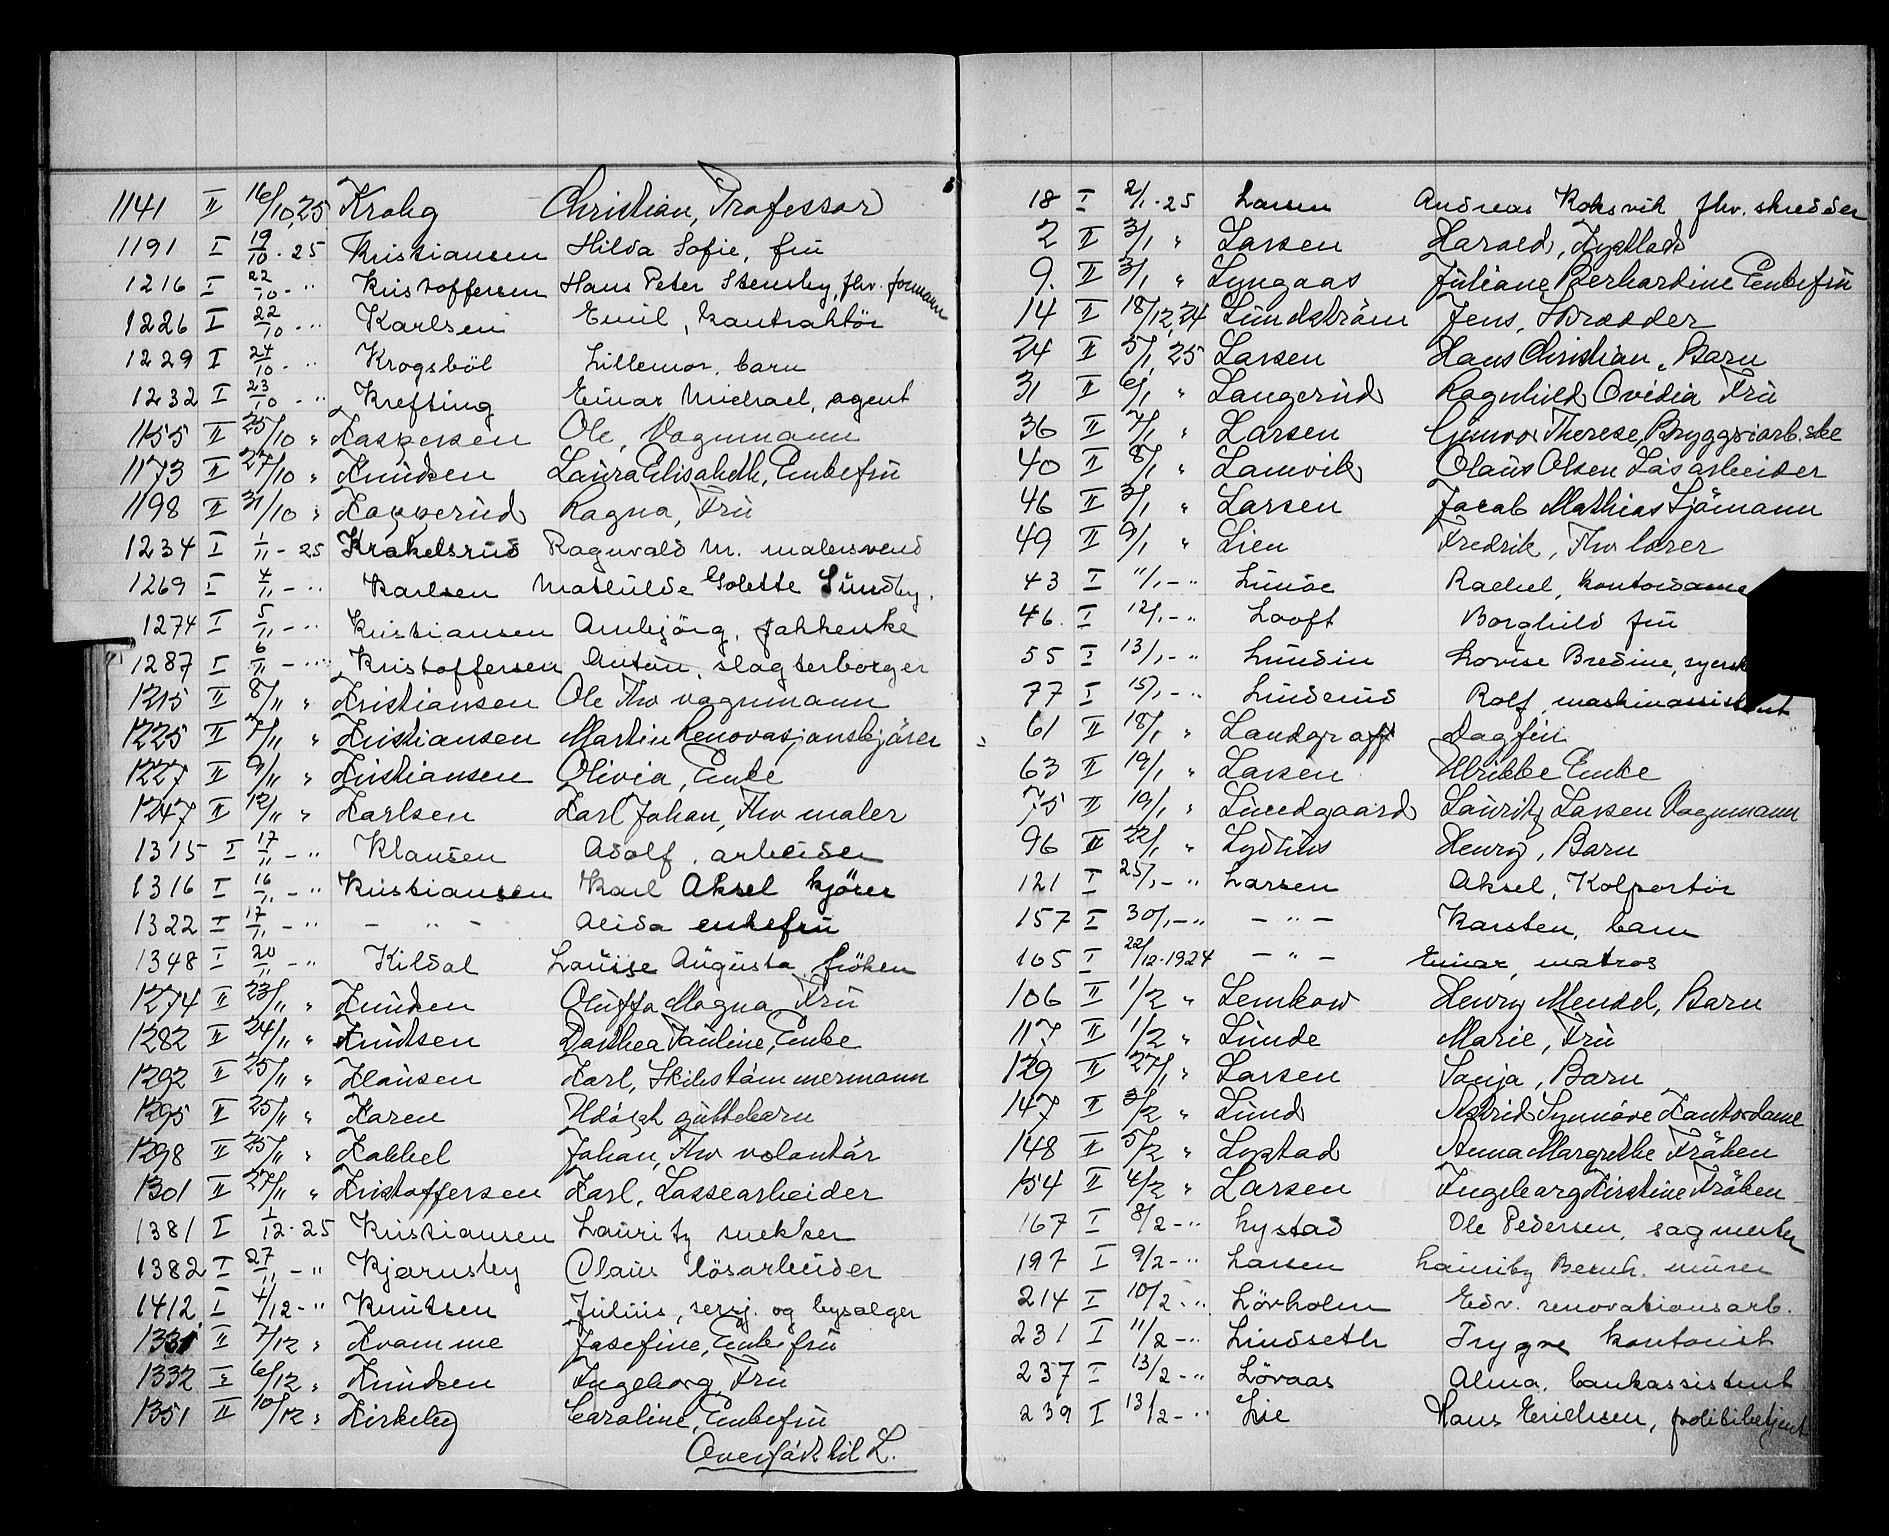 1141 II 16/10,25 Krohg Christian, Professor
1191 I 19/10 . 25 Kristiansen Hilda Sofie, fru
1216 I 22/10 - " Kristoffersen Hans Peter Stensby, fhv. formann
1226 I 22/10 - " Karlsen Emil, kontraktör
1229 I 24/10 - " Krogsböl Lillemor, barn
1232 I 23/10 - " Krefting Einar Michael, agent
1155 II 25/10 " Kaspersen Ole, Vognmann
1173 II 27/10 " Knudsen Laura Elisabeth, Enkefru
1198 II 31/10 " Kopperud Ragna, Fru
1234 I 1/11 - 25 Krakelsrud Ragnvald M. malersvend
1269 I 4/11 - " Karlsen Mathilde Golette Sundby.
1274 I 5/11 - " Kristiansen Arnbjörg,
1287 I 6/11 - " Kristoffersen Anton, slagterborger
1215 II 8/11 " Kristiansen Ole Fhv vognmann
1225 II 7/11 " Kristiansen Martin Renovasjonskjörer
1227 II 9/11 " Kristiansen Olivia, Enke
1247 II 12/11 " Karlsen Karl Johan, Fhv maler
1315 I 17/11 - " Klausen Adolf, arbeider
1316 I 16/11 - " Kristiansen Karl Aksel kjörer
1322 I 17/11 - " - " - Alida enkefru
1348 I 20/11 - " Kildal Louise Augusta, fröken
1274 II 23/11 " Knudsen Oluffa Magna Fru
1282 II 24/11 " Knudsen Dorthea Pauline, Enke
1292 II 25/11 " Klausen Karl, Skibstömmermann
1295 II 25/11 " Karen Udöpt guttebarn
1298 II 25/11 " Kabbel Johan, Fhv volontär
1301 II 27/11 " Kristoffersen Karl, Lossearbeider
1381 I 1/12 . 25 Kristiansen Lauritz snekker
1382 I 27/11 - " Kjernsby Olaus lösarbeider
1412 I 4/12 - " Knutsen Julius, sersj. og bysælger
1331 II 7/12 " Kvamme Josefine, Enkefru
1332 II 6/12 " Knudsen Ingeborg, Fru
1351 II 10/12 " Kirkeby Caroline, Enkefru
Overfört til L.
18 I 2/1 . 25 Larsen Andreas Roksvik fhv. skredder
2 II 3/1 " Larsen Harald,
9. II 3/1 " Lyngaas Juliane Berhardine Enkefru
14 II 18/12,24 Lundström Jens, Skredder
24 II 5/1, 25 Larsen Hans Christian, Barn
31 II 6/1 " Langerud Ragnhild Ovidia Fru
36 II 7/1 " Larsen Gunvor Therese, Bryggeriarb.ske
40 II 8/1 " Lamvik Olaus Olsen Lösarbeider
46 II 3/1 " Larsen Jacob Mathias Sjömann
49 II 9/1 " Lien Fredrik, Fhv lærer
43 I 11/1 - " Lunde Rachel, kontordame
46. I 12/1 - " Looft Borghild fru
55 I 13/1 - " Lundin Lovise Bredine, syersk
77 I 15/1 - " Linderud Rolf, maskinassistent
61 II 18/1 " Landgraff Dagfin
63 II 19/1 " Larsen Ulrikke Enke
75 II 19/1 " Lundgaard Lauritz Larsen Vognmann
96 II 22/1 " Lydius Henry, Barn
121 I 25/1 - " Larsen Aksel, Kolportör
157 I 30/1 - " - " - Karsten, barn
105 I 22/12-1924 - " - Einar, matros
106 II 1/2 " Lemkow Henry Mendel, Barn
117 II 1/2 " Lunde Marie, Fru
129 II 27/1 " Larsen Sonja, Barn
147 II 3/2 " Lund Astrid Synnöve Kontordame
148 II 5/2 " Lystad Anna Margrethe Fröken
154 II 4/2 " Larsen Ingeborg Kirstine Fröken
167 I 8/2 - " Lystad Ole Pedersen, sagmester
197 I 9/2 - " Larsen Lauritz Bernh. murer
214 I 10/2 - " Lövholm Edv. renovationsarb.
231 I 11/2 - " Lindseth Trygve kontorist
237 I 13/2 - " Lövaas Alma, bankassistent
239 I 13/2 - " Lie Hans Erichsen, politibetjent